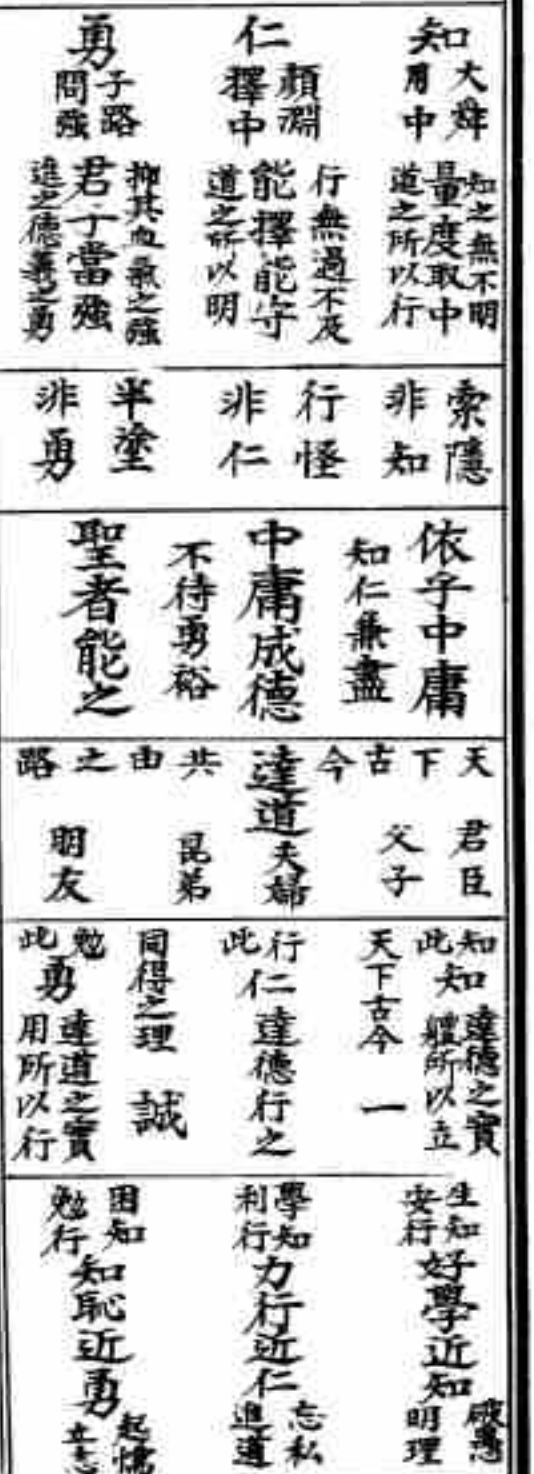 知
大舜
用中
知之無不明
量度取中
道之所以行
仁
顏淵
擇中
行無過不及
能擇能守
道之所以明
勇
子路
問強
抑其血氣之強
君子當強
進之德義之勇
索隱
非知
行怪
非仁
半塗
非勇
依乎中庸
知仁兼盡
中庸成德
不待勇裕
聖者能之
天下古今共由之路
君臣
父子
達道
夫婦
昆弟
朋友
知此
知
達德之實
體所以立
天下古今
一
行此
仁
達德行之
同得之理
誠
勉此
勇
達道之實
用所以行
生知
安行
好學近知
破愚
明理
學知
利行
力行近仁
忘私
進道
困知
勉行
知恥近勇
起懦
立志